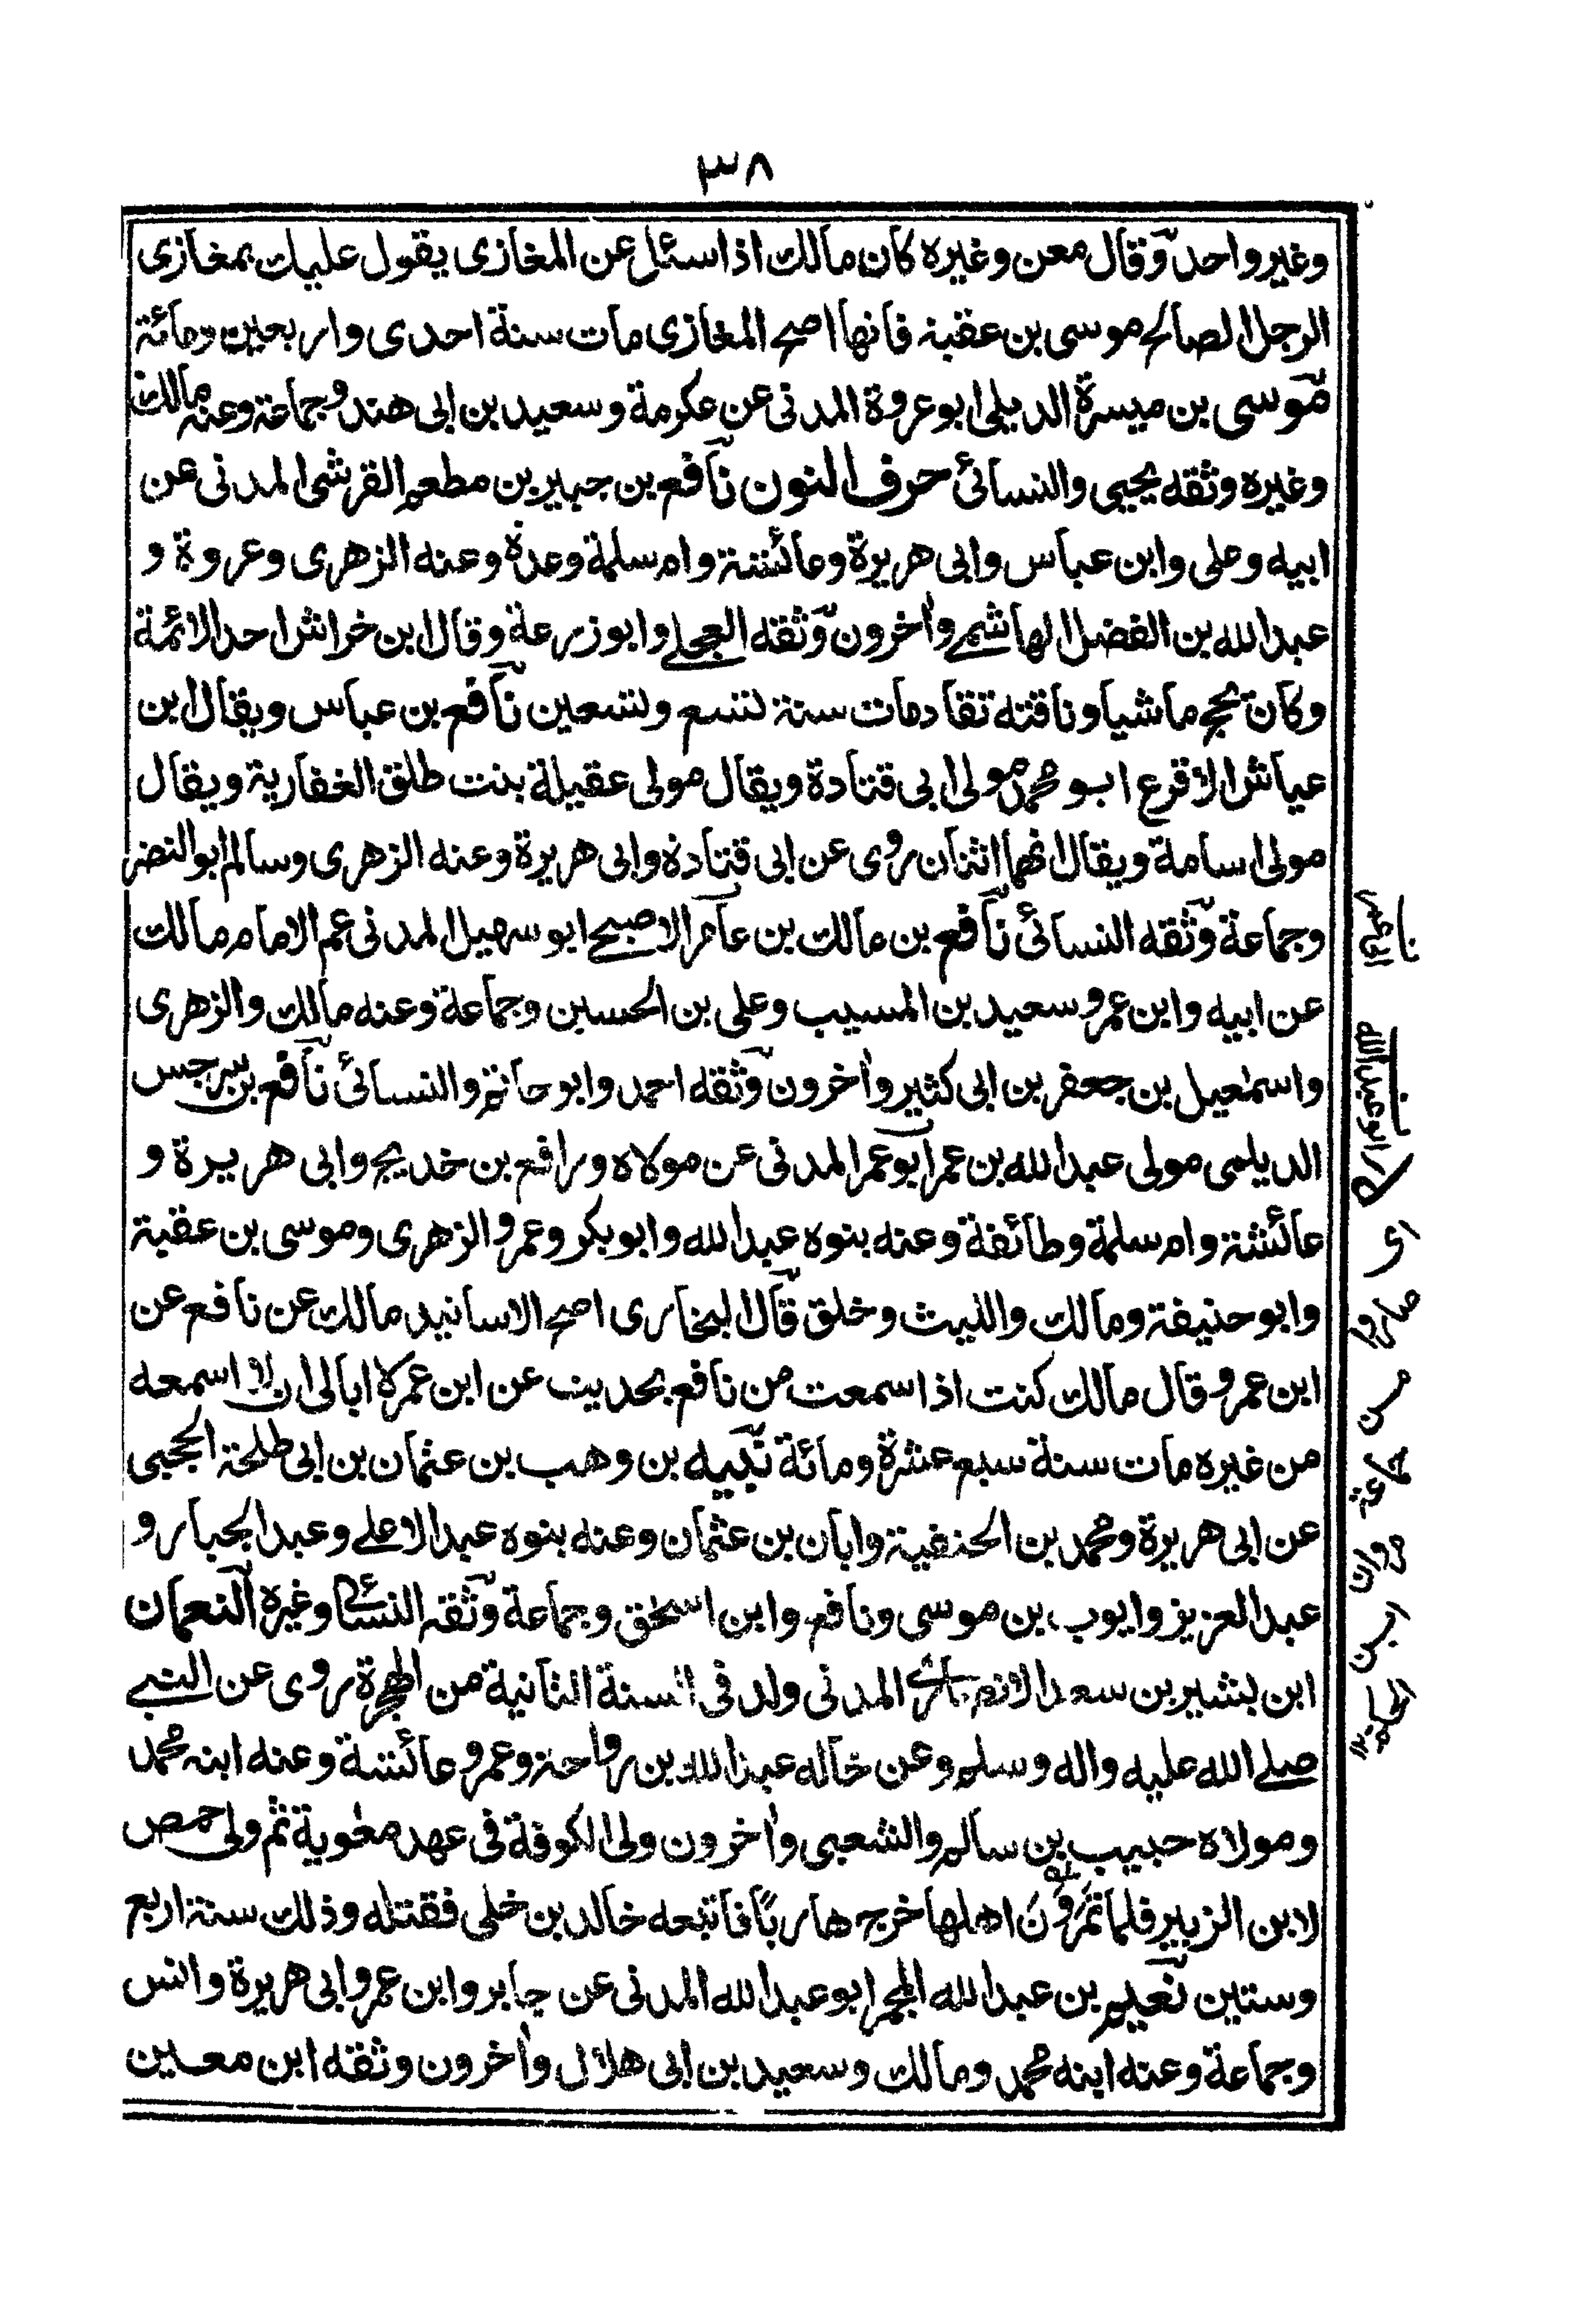 ٣٨
وغير واحد وقال معن وغيره كان مالك اذا سئل عن المغازى يقول عليك بمغازى
الرجل الصالح موسى بن عقبة فانها اصح المغازى مات سنة احدى واربعين ومائة
موسى بن ميسرة الديلى ابو عروة المدنى عن عكرمة وسعيد بن ابى هند وجماعة وعنه مالك
وغيره وثقه يحيى والنسائى حرف النون نافع بن جبير بن مطعم القرشى المدنى عن
ابيه وعلى وابن عباس وابى هريرة وعائشة وام سلمة وعدة وعنه الزهرى وعروة و
عبد الله بن الفضل الهاشمى واٰخرون وثقه العجلى وابو زرعة وقال ابن خراش احد الائمة
وكان يحج ماشيا وناقته تقاد مات سنة تسع وتسعين نافع بن عباس ويقال ابن
عياش الاقرع ابو محمد مولى ابى قتادة ويقال مولى عقيلة بنت طلق الغفارية ويقال
مولى اسامة ويقال انهما اثنان روى عن ابى قتادة وابى هريرة وعنه الزهرى وسالم ابو النضر
وجماعة وثقه النسائى نافع بن مالك بن عامر الاصبحى ابو سهيل المدنى عم الامام مالك
عن ابيه وابن عمر وسعيد بن المسيب وعلى بن الحسين وجماعة وعنه مالك والزهرى
واسمٰعيل بن جعفر بن ابى كثير واٰخرون وثقه احمد وابو حاتم والنسائى نافع بن سرجس
الديلمى مولى عبد الله بن عمر ابو عمر المدنى عن مولاه ورافع بن خديج وابى هريرة و
عائشة وام سلمة وطائفة وعنه بنوه عبد الله وابو بكر وعمر والزهرى وموسى بن عقبة
وابو حنيفة ومالك والليث وخلق قال البخارى اصح الاسانيد مالك عن نافع عن
ابن عمر وقال مالك كنت اذا سمعت من نافع بحديث عن ابن عمر لا ابالى ان لا اسمعه
من غيره مات سنة سبع عشرة ومائة نبيه بن وهب بن عثمان بن ابى طلحة الحجبى
عن ابى هريرة ومحمد بن الحنفية وابان بن عثمان وعنه بنوه عبد الاعلى وعبد الجبار و
عبد العزيز وايوب بن موسى ونافع وابن اسحٰق وجماعة وثقه النسائى وغيره النعمان
ابن بشير بن سعد الانصارى المدنى ولد فى السنة الثانية من الهجرة روى عن النبى
صلى الله عليه واله وسلم وعن خاله عبد الله بن رواحة وعمر وعائشة وعنه ابنه محمد
ومولاه حبيب بن سالم والشعبى واٰخرون ولى الكوفة فى عهد معٰوية ثم ولى حمص
لابن الزبير فلما تمرون اهلها خرج هاربًا فاتبعه خالد بن خلى فقتله وذلك سنة اربع
وستين نعيم بن عبد الله المجمر ابو عبد الله المدنى عن جابر وابن عمر وابى هريرة وانس
وجماعة وعنه ابنه محمد ومالك وسعيد بن ابى هلال واٰخرون وثقه ابن معين
ابو عبد الله